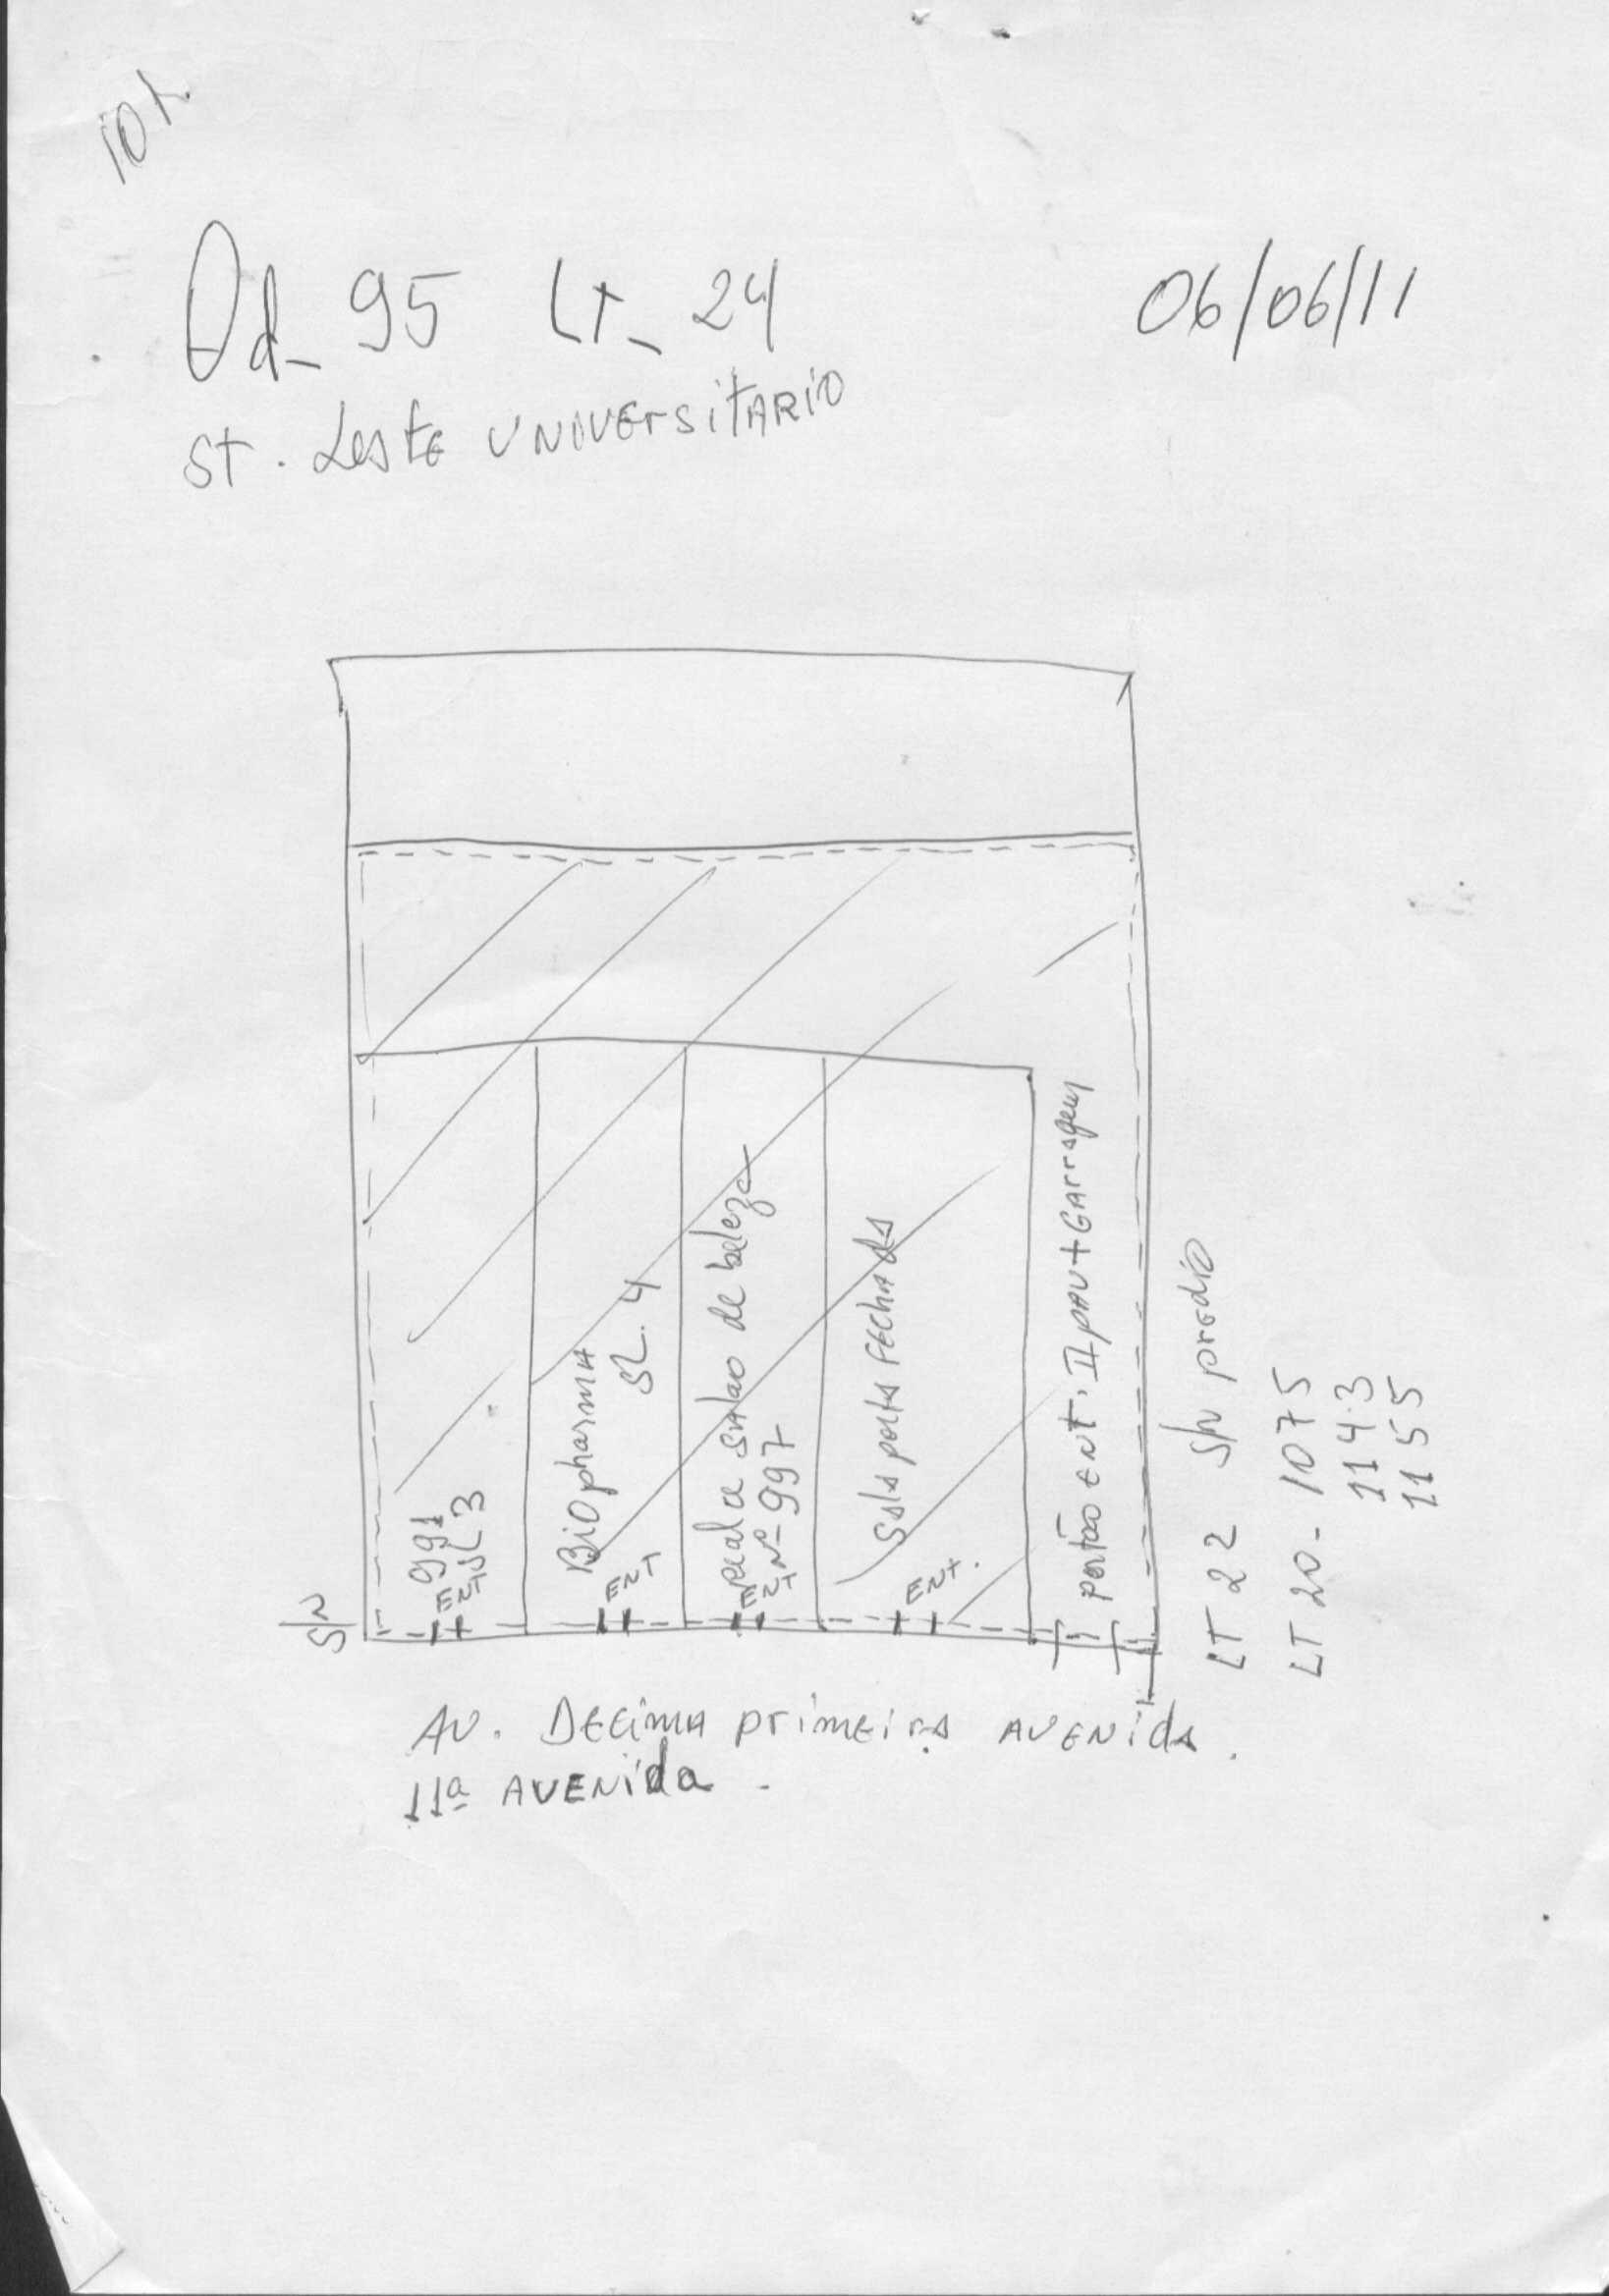 101.
Qd_ 95 Lt_ 24
06/06/11
ST. Leste UNIVErsitARiO
S/N
991
ENT SL 3
BiOpharmA
SL. 4
ENT
salao de beleza
ENT Nº 997
Sala porta FEchAda
ENT.
portão ENt. II pAV + GArragem
LT 22 S/N prEdiO
LT 20 - 1075
1143
1155
AV. DEcimA primEira AVENida.
11ª AVENida.